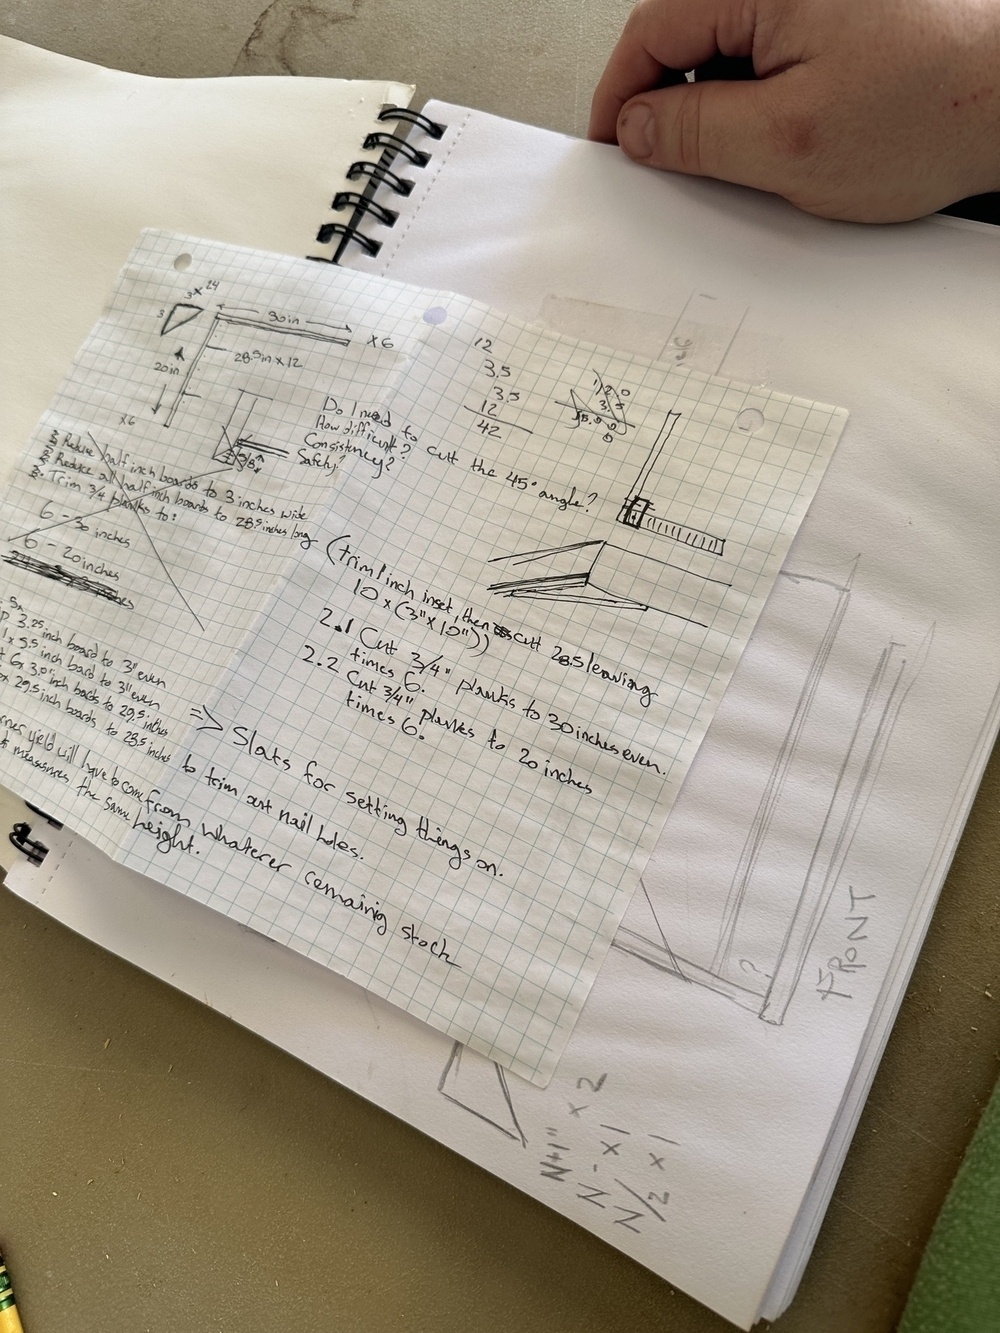 3 x 24
3
30in
x 6
28.5in x 12
20in
x6
12
3.5
3.5
12
42
Do I need to cut the 45° angle?
How difficult?
Consistency?
Safety?
Reduce half inch boards to 3 inches wide
Reduce all half inch boards to 28.5 inches long
Trim 3/4 planks to:
6 - 30 inches
6 - 20 inches
3.25 inch board to 3" even
1 x 5.5 inch bard to 3" even
3.0 inch bards to 29.5 inches
29.5 inch boards to 28.5 inches
(trim 1 inch inset, then cut 28.5 leaving
10 x (3" x 10"))
2.1 Cut 3/4" planks to 30 inches even.
times 6.
2.2 Cut 3/4" planks to 20 inches
times 6.
=> Slats for setting things on.
to trim out nail holes.
yield will have to come from whatever remaining stock
measures the same height.
?
FRONT
N+1" x 2
N - x 1
N/2 x 1